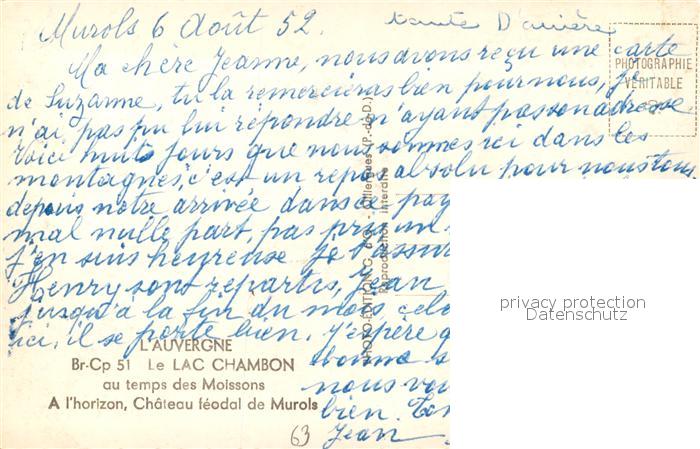 Murols 6 Août 52. tante D'
Ma chère Jeanne, nous avons reçu une carte
de Suzanne, tu la remercieras bien pour nous, je
n'ai pas pu lui répondre n'ayant pas son adresse
Voici huit jours que nous sommes ici dans les
montagnes, c'est un repos absolu pour nous tous.
depuis notre arrivée dans ce pay
mal nulle part, pas pris un
j'en suis heureuse je t'assur
Henry sont repartis, Jean
jusqu'à la fin du mois, cela
ici, il se porte bien. J'espère q
bonne s
nous vou
bien.
Jean
PHOTOGRAPHIE
VÉRITABLE
PHOTO-EDITION C. d'O. - Gillengues (P.-de-D.)
Reproduction interdite
L'AUVERGNE
Br-Cp 51 Le LAC CHAMBON
au temps des Moissons
A l'horizon, Château féodal de Murols
63
privacy protection
Datenschutz